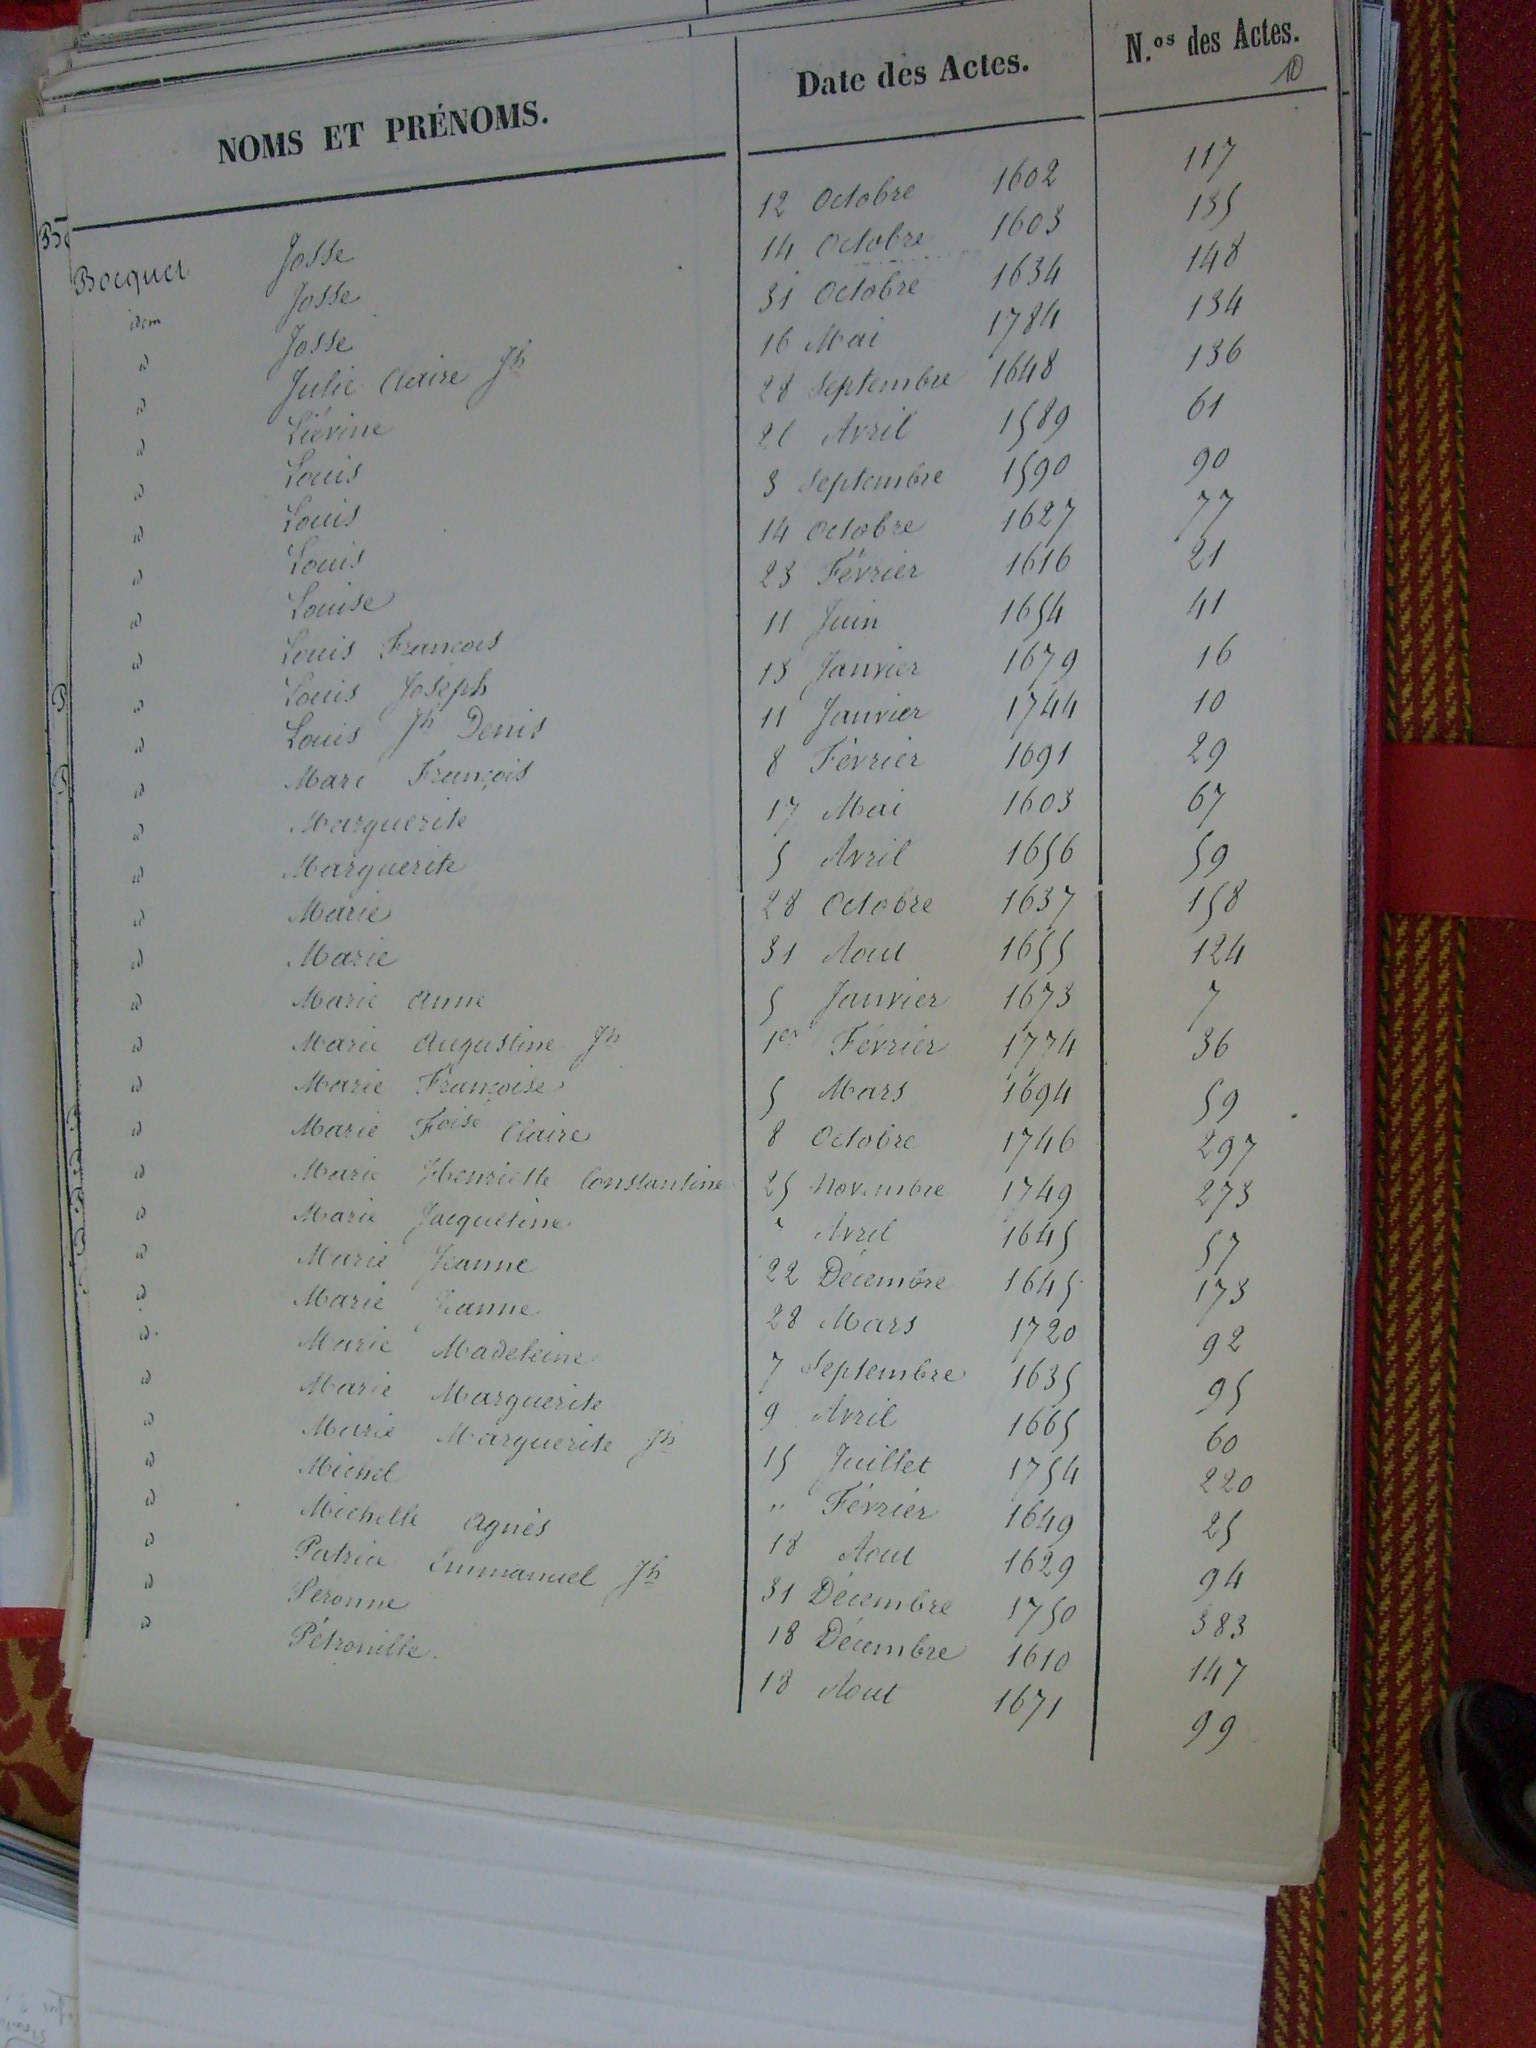 NOMS ET PRÉNOMS. Date des Actes. N.os des Actes.
10
Bocquet Josse 12 Octobre 1602 117
idem Josse 14 Octobre 1603 135
" Josse 31 Octobre 1634 148
" Julie Claire Jh 16 Mai 1784 134
" Liévine 28 Septembre 1648 136
" Louis Avril 1589 61
" Louis 3 Septembre 1590 90
" Louis 14 Octobre 1627 77
" Louise 23 Février 1616 21
" Louis François 11 Juin 1654 41
" Louis Joseph 13 Janvier 1679 16
" Louis Jh Denis 11 Janvier 1744 10
" Marc François 8 Février 1691 29
" Marguerite 17 Mai 1603 67
" Marguerite 5 Avril 1656 59
" Marie 28 Octobre 1637 158
" Marie 31 Aout 1655 124
" Marie Anne 5 Janvier 1673 7
" Marie Augustine Jh 1er Février 1774 36
" Marie Françoise 5 Mars 1694 59
" Marie Foise Claire 8 Octobre 1746 297
" Marie Henriette Constantine 25 Novembre 1749 273
" Marie Jacqueline " Avril 1645 57
" Marie Jeanne 22 Décembre 1645 173
" Marie Jeanne 28 Mars 1720 92
" Marie Madeleine 7 Septembre 1635 95
" Marie Marguerite 9 Avril 1665 60
" Marie Marguerite Jh 15 Juillet 1754 220
" Michel " Février 1649 25
" Michelle Agnès 18 Aout 1629 94
" Patrice Emmanuel Jh 31 Décembre 1750 383
" Peronne 18 Décembre 1610 147
" Pétronille 18 Aout 1671 99